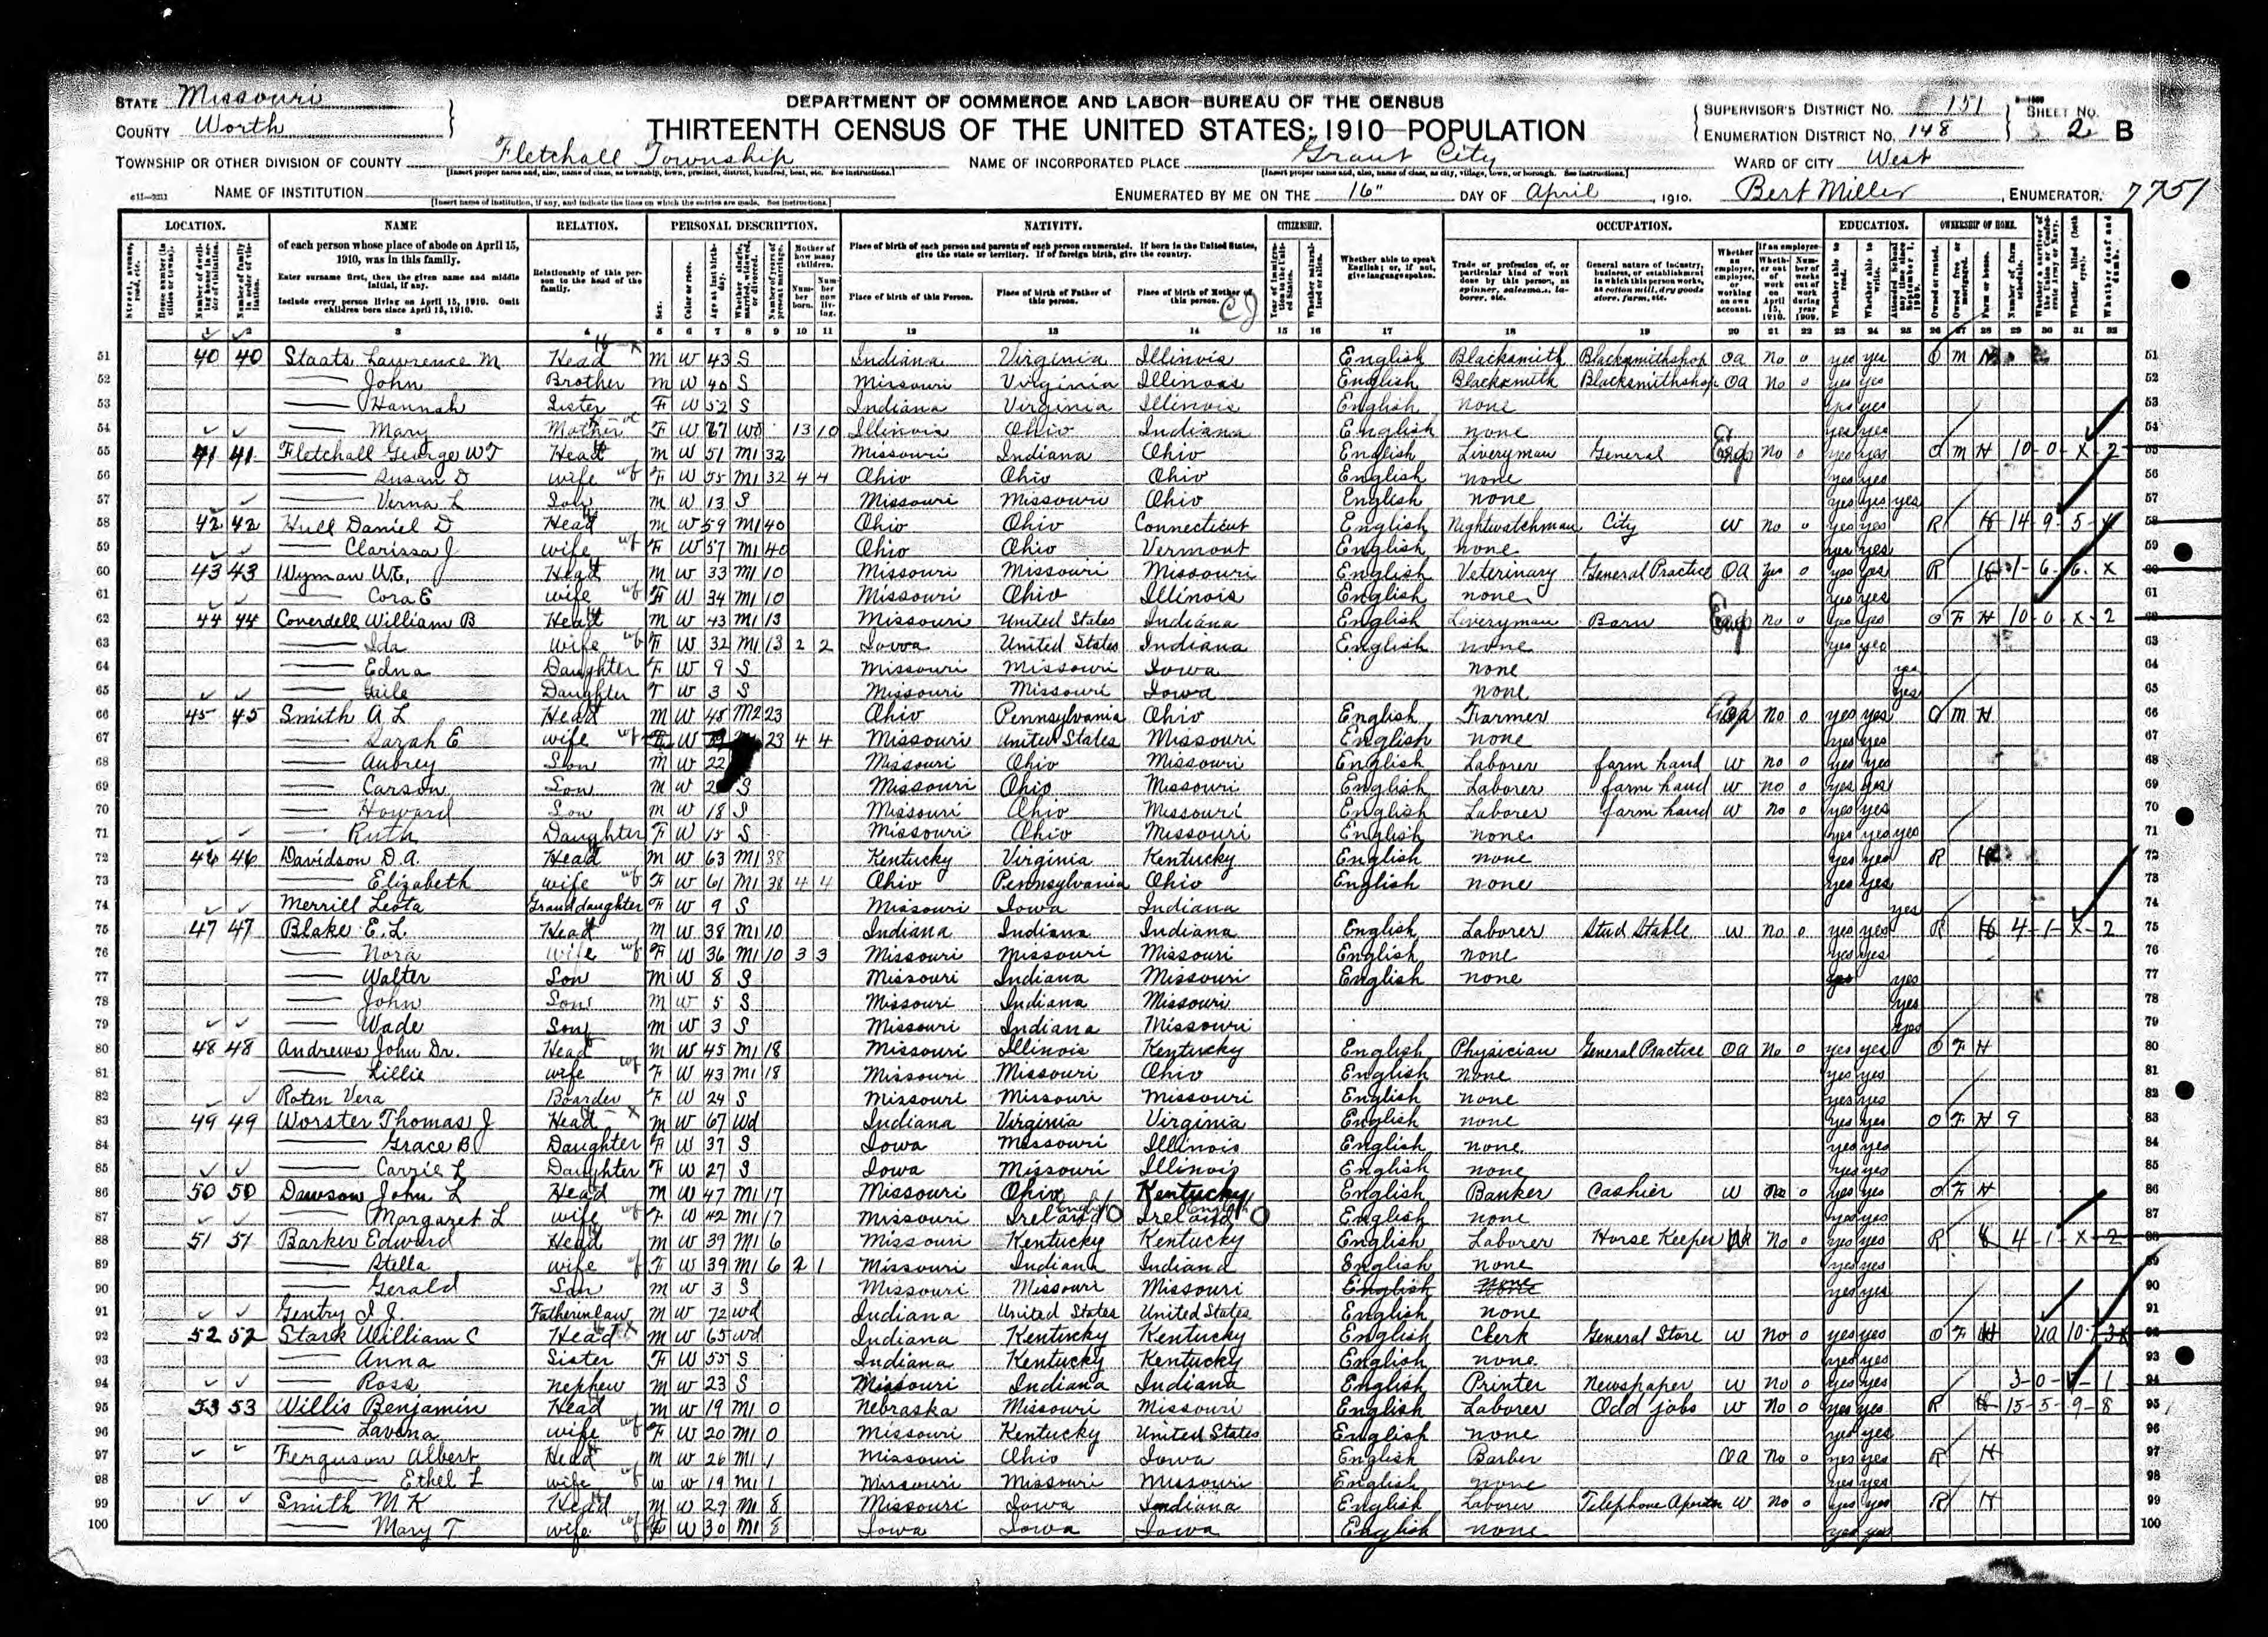 STATE Missouri
COUNTY Worth
DEPARTMENT OF COMMERCE AND LABOR—BUREAU OF THE CENSUS
THIRTEENTH CENSUS OF THE UNITED STATES: 1910—POPULATION
SUPERVISOR'S DISTRICT No. 151
ENUMERATION DISTRICT No. 148
SHEET No. 2 B
TOWNSHIP OR OTHER DIVISION OF COUNTY Fletchall Township
NAME OF INCORPORATED PLACE Grant City
WARD OF CITY West
NAME OF INSTITUTION
ENUMERATED BY ME ON THE 16" DAY OF April, 1910. Bert Miller, ENUMERATOR. 7751
LOCATION. NAME RELATION. PERSONAL DESCRIPTION. NATIVITY. CITIZENSHIP. OCCUPATION. EDUCATION. OWNERSHIP OF HOME.
of each person whose place of abode on April 15, 1910, was in this family.
Enter surname first, then the given name and middle initial, if any.
Include every person living on April 15, 1910. Omit children born since April 15, 1910.
Relationship of this person to the head of the family.
Place of birth of each person and parents of each person enumerated. If born in the United States, give the state or territory. If of foreign birth, give the country.
Place of birth of this Person. Place of birth of Father of this person. Place of birth of Mother of this person.
Whether able to speak English; or, if not, give language spoken.
3 4 5 6 7 8 9 10 11 12 13 14 15 16 17 18 19 20 21 22 23 24 25 26 27 28 29 30 31 32
51 40 40 Staats Lawrence M Head M W 43 S Indiana Virginia Illinois English Blacksmith Blacksmithshop OA No 0 yes yes O M 51
52 John Brother M W 40 S Missouri Virginia Illinois English Blacksmith Blacksmithshop OA No 0 yes yes 52
53 Hannah Sister F W 52 S Indiana Virginia Illinois English none yes yes 53
54 Mary Mother F W 67 Wd 13 10 Illinois Ohio Indiana English none yes yes 54
55 41 41 Fletchall George W T Head M W 51 M1 32 Missouri Indiana Ohio English Liveryman General Emp No 0 yes yes O M H 10-0-X-2 55
56 Susan D wife F W 55 M1 32 4 4 Ohio Ohio Ohio English none yes yes 56
57 Verna L Son M W 13 S Missouri Missouri Ohio English none yes yes yes 57
58 42 42 Hull Daniel D Head M W 59 M1 40 Ohio Ohio Connecticut English Nightwatchman City W No 0 yes yes R H 14-9-5-4 58
59 Clarissa J wife F W 57 M1 40 Ohio Ohio Vermont English none yes yes 59
60 43 43 Wyman W.E. Head M W 33 M1 10 Missouri Missouri Missouri English Veterinary General Practice OA yes 0 yes yes R H 60
61 Cora E wife F W 34 M1 10 Missouri Ohio Illinois English none yes yes 61
62 44 44 Coverdell William B Head M W 43 M1 13 Missouri United States Indiana English Liveryman Barn Emp No 0 yes yes O F H 10-0-X-2 62
63 Ida wife F W 32 M1 13 2 2 Iowa United States Indiana English none yes yes 63
64 Edna Daughter F W 9 S Missouri Missouri Iowa none yes 64
65 Gaile Daughter F W 3 S Missouri Missouri Iowa none yes 65
66 45 45 Smith A L Head M W 48 M2 23 Ohio Pennsylvania Ohio English Farmer No 0 yes yes O M H 66
67 Sarah E wife F W 23 4 4 Missouri United States Missouri English none yes yes 67
68 Aubrey Son M W 22 Missouri Ohio Missouri English Laborer farm hand W No 0 yes yes 68
69 Carson Son M W S Missouri Ohio Missouri English Laborer farm hand W No 0 yes yes 69
70 Howard Son M W 18 S Missouri Ohio Missouri English Laborer farm hand W No 0 yes yes 70
71 Ruth Daughter F W 15 S Missouri Ohio Missouri English none yes yes yes 71
72 46 46 Davidson D.A. Head M W 63 M1 38 Kentucky Virginia Kentucky English none yes yes R H 72
73 Elizabeth wife F W 61 M1 38 4 4 Ohio Pennsylvania Ohio English none yes yes 73
74 Merrill Leota Granddaughter F W 9 S Missouri Iowa Indiana yes 74
75 47 47 Blake E.L. Head M W 38 M1 10 Indiana Indiana Indiana English Laborer Stud Stable W No 0 yes yes R H 4-1-X-2 75
76 Nora wife F W 36 M1 10 3 3 Missouri Missouri Missouri English none yes yes 76
77 Walter Son M W 8 S Missouri Indiana Missouri English none yes yes 77
78 John Son M W 5 S Missouri Indiana Missouri yes 78
79 Wade Son M W 3 S Missouri Indiana Missouri yes 79
80 48 48 Andrews John Dr. Head M W 45 M1 18 Missouri Illinois Kentucky English Physician General Practice OA No 0 yes yes O F H 80
81 Lillie wife F W 43 M1 18 Missouri Missouri Ohio English none yes yes 81
82 Roten Vera Boarder F W 24 S Missouri Missouri Missouri English none yes yes 82
83 49 49 Worster Thomas J Head M W 67 Wd Indiana Virginia Virginia English none yes yes O F H 9 83
84 Grace B Daughter F W 37 S Iowa Missouri Illinois English none yes yes 84
85 Carrie L Daughter F W 27 S Iowa Missouri Illinois English none yes yes 85
86 50 50 Dawson John L Head M W 47 M1 17 Missouri Ohio Kentucky English Banker Cashier W No 0 yes yes O F H 86
87 Margaret L wife F W 42 M1 17 Missouri Ireland English Ireland English English none yes yes 87
88 51 51 Barker Edward Head M W 39 M1 6 Missouri Kentucky Kentucky English Laborer Horse Keeper No 0 yes yes R 4-1-X-2 88
89 Stella wife F W 39 M1 6 2 1 Missouri Indiana Indiana English none yes yes 89
90 Gerald Son M W 3 S Missouri Missouri Missouri English none yes yes 90
91 Gentry I J. Fatherinlaw M W 72 Wd Indiana United States United States English none yes yes 91
92 52 52 Stark William C Head M W 65 Wd Indiana Kentucky Kentucky English Clerk General Store W No 0 yes yes O F H UA 92
93 Anna Sister F W 55 S Indiana Kentucky Kentucky English none yes yes 93
94 Ross Nephew M W 23 S Missouri Indiana Indiana English Printer Newspaper W No 0 yes yes 94
95 53 53 Willis Benjamin Head M W 19 M1 0 Nebraska Missouri Missouri English Laborer Odd jobs W No 0 yes yes R H 15-5-9-8 95
96 Lavona wife F W 20 M1 0 Missouri Kentucky United States English none yes yes 96
97 Ferguson Albert Head M W 26 M1 1 Missouri Ohio Iowa English Barber OA No 0 yes yes R H 97
98 Ethel L wife W W 19 M1 1 Missouri Missouri Missouri English none yes yes 98
99 Smith M K Head M W 29 M1 8 Missouri Iowa Indiana English Laborer Telephone W No 0 yes yes R H 99
100 Mary T wife F W 30 M1 8 Iowa Iowa Iowa English none yes yes 100